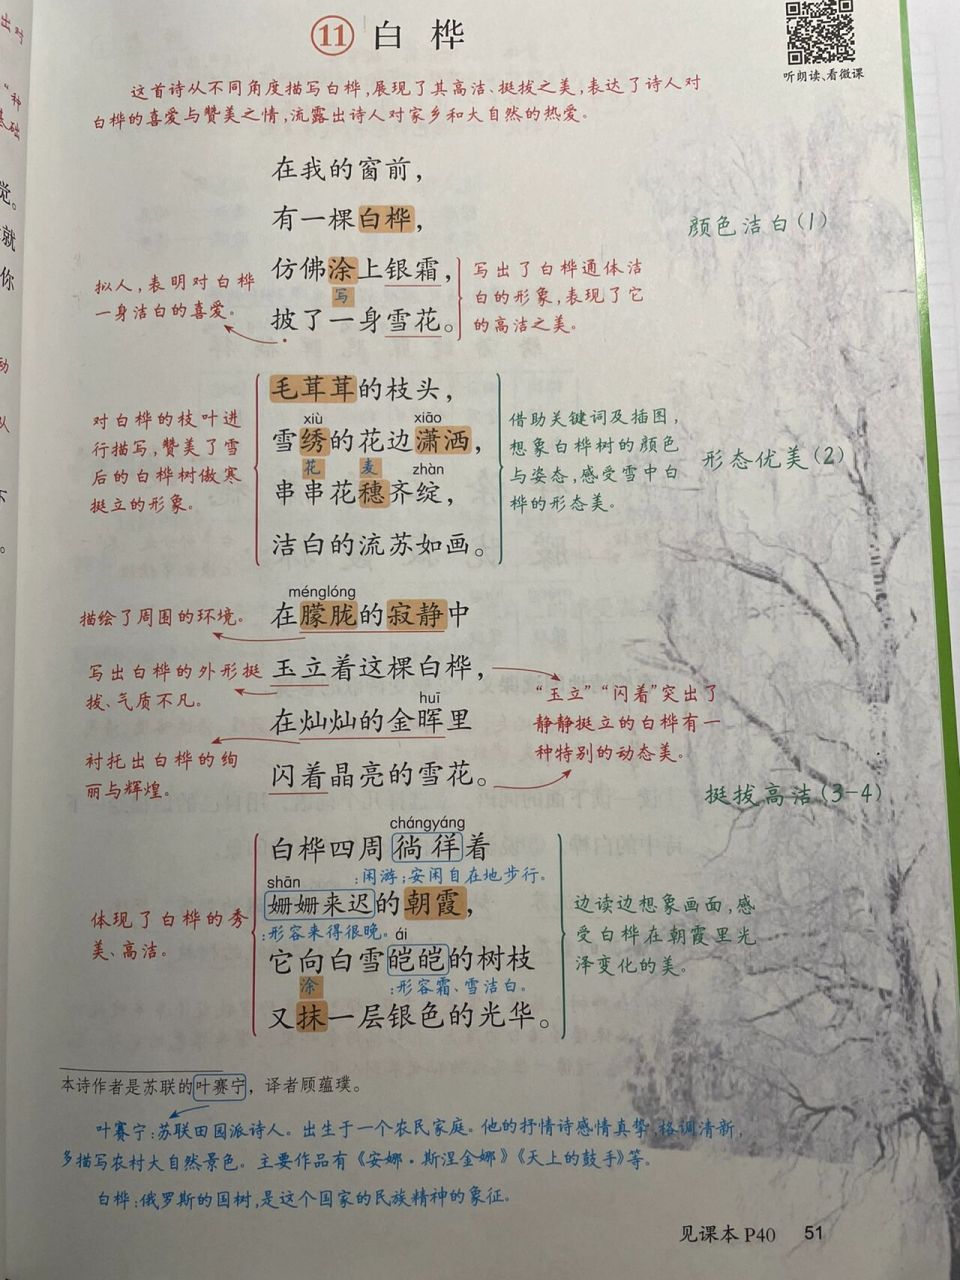 ⑪ 白桦
听朗读、看微课
这首诗从不同角度描写白桦,展现了其高洁、挺拔之美,表达了诗人对
白桦的喜爱与赞美之情,流露出诗人对家乡和大自然的热爱。
在我的窗前,
有一棵白桦,
颜色洁白(1)
仿佛涂上银霜,
写
披了一身雪花。
拟人,表明对白桦
一身洁白的喜爱。
写出了白桦通体洁
白的形象,表现了它
的高洁之美。
毛茸茸的枝头,
xiù xiāo
雪绣的花边潇洒,
花 麦 zhàn
串串花穗齐绽,
洁白的流苏如画。
对白桦的枝叶进
行描写,赞美了雪
后的白桦树傲寒
挺立的形象。
借助关键词及插图,
想象白桦树的颜色
与姿态,感受雪中白
桦的形态美。
形态优美(2)
ménglóng
在朦胧的寂静中
描绘了周围的环境。
玉立着这棵白桦,
写出白桦的外形挺
拔、气质不凡。
huī
在灿灿的金晖里
衬托出白桦的绚
丽与辉煌。
闪着晶亮的雪花。
“玉立”“闪着”突出了
静静挺立的白桦有一
种特别的动态美。
挺拔高洁(3-4)
chángyáng
白桦四周徜徉着
:闲游;安闲自在地步行。
shān
姗姗来迟的朝霞,
:形容来得很晚。 ái
它向白雪皑皑的树枝
涂 :形容霜、雪洁白。
又抹一层银色的光华。
体现了白桦的秀
美、高洁。
边读边想象画面,感
受白桦在朝霞里光
泽变化的美。
本诗作者是苏联的叶赛宁,译者顾蕴璞。
叶赛宁:苏联田园派诗人。出生于一个农民家庭。他的抒情诗感情真挚 格调清新,
多描写农村大自然景色。主要作品有《安娜·斯涅金娜》《天上的鼓手》等。
白桦:俄罗斯的国树,是这个国家的民族精神的象征。
见课本 P40 51